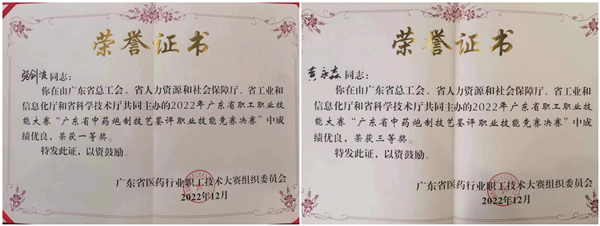 荣誉证书
张剑波同志：
你在由广东省总工会、省人力资源和社会保障厅、省工业和
信息化厅和省科学技术厅共同主办的2022年广东省职工职业技
能大赛“广东省中药炮制技艺鉴评职业技能竞赛决赛”中成
绩优良，荣获一等奖。
特发此证，以资鼓励。
广东省医药行业职工技术大赛组织委员会
2022年12月
荣誉证书
黄永森同志：
你在由广东省总工会、省人力资源和社会保障厅、省工业和
信息化厅和省科学技术厅共同主办的2022年广东省职工职业技
能大赛“广东省中药炮制技艺鉴评职业技能竞赛决赛”中成
绩优良，荣获三等奖。
特发此证，以资鼓励。
广东省医药行业职工技术大赛组织委员会
2022年12月